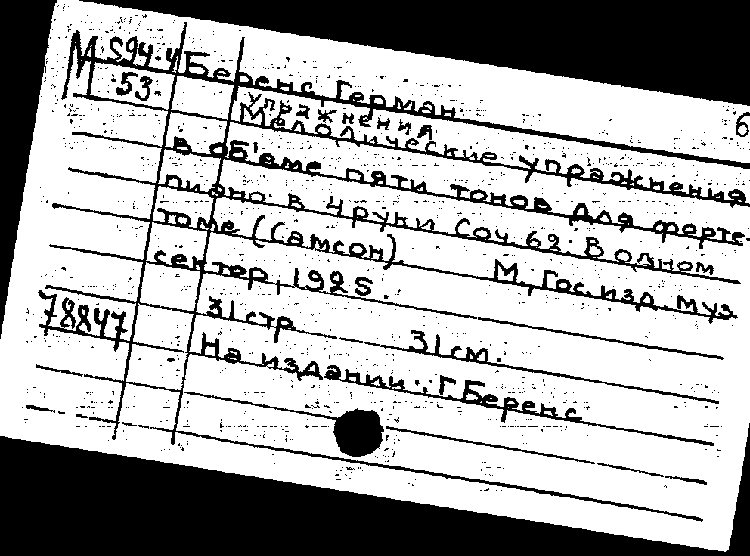 М 594.4 Беренс, Герман 6
53. упражнения
Мелодические упражнения
в об'еме пяти тонов для форте-
пиано в 4 руки Соч. 62. В одном
томе (Самсон). М., Гос. изд. муз.
сектер, 1925.
78847 31 стр 31 см.
На издании: Г. Беренс